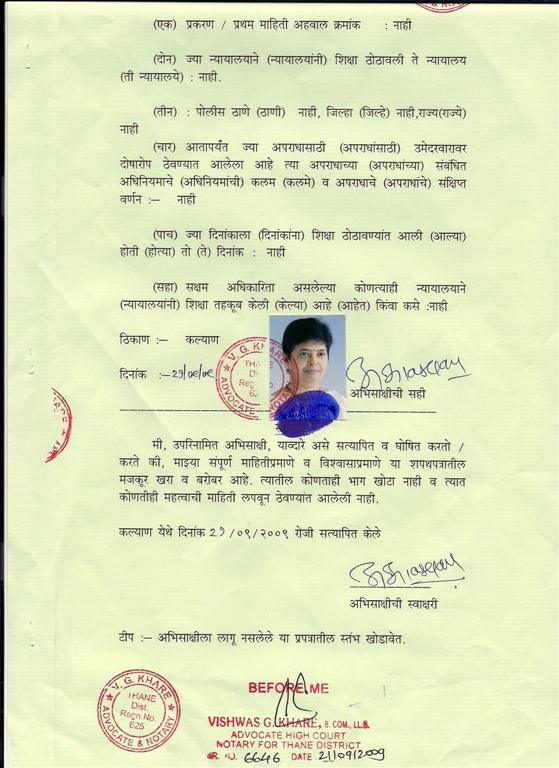 & NOTARY
(एक) प्रकरण / प्रथम माहिती अहवाल क्रमांक : नाही
(दोन) ज्या न्यायालयाने (न्यायालयांनी) शिक्षा ठोठावली ते न्यायालय
(ती न्यायालये) : नाही.
(तीन) : पोलीस ठाणे (ठाणी) नाही, जिल्हा (जिल्हे) नाही,राज्य(राज्ये)
नाही
(चार) आतापर्यंत ज्या अपराधासाठी (अपराधांसाठी) उमेदवारावर
दोषारोप ठेवण्यात आलेला आहे त्या अपराधाच्या (अपराधांच्या) संबंधित
अधिनियमाचे (अधिनियमांची) कलम (कलमे) व अपराधाचे (अपराधांचे) संक्षिप्त
वर्णन :— नाही
(पाच) ज्या दिनांकाला (दिनांकांना) शिक्षा ठोठावण्यांत आली (आल्या)
होती (होत्या) तो (ते) दिनांक : नाही
(सहा) सक्षम अधिकारिता असलेल्या कोणत्याही न्यायालयाने
(न्यायालयांनी) शिक्षा तहकूब केली (केल्या) आहे (आहेत) किंवा कसे :नाही
ठिकाण :— कल्याण
V. G. KHARE
THANE
Regn.
ADVOCATE & NOTARY
दिनांक :— २१/०९/०९
अभिसाक्षीची सही
मी, उपरिनामित अभिसाक्षी, याव्दारे असे सत्यापित व घोषित करतो /
करते की, माझ्या संपूर्ण माहितीप्रमाणे व विश्वासाप्रमाणे या शपथपत्रातील
मजकूर खरा व बरोबर आहे. त्यातील कोणताही भाग खोटा नाही व त्यात
कोणतीही महत्वाची माहिती लपवून ठेवण्यांत आलेली नाही.
कल्याण येथे दिनांक २१/०९/२००९ रोजी सत्यापित केले
अभिसाक्षीची स्वाक्षरी
टीप :— अभिसाक्षीला लागू नसलेले या प्रपत्रातील स्तंभ खोडावेत.
V. G. KHARE
THANE
Dist.
Regn.No.
625
ADVOCATE & NOTARY
BEFORE ME
VISHWAS G. KHARE, B. COM., LL.B.
ADVOCATE HIGH COURT
NOTARY FOR THANE DISTRICT
SR. NO. 6646 DATE 21/09/2009